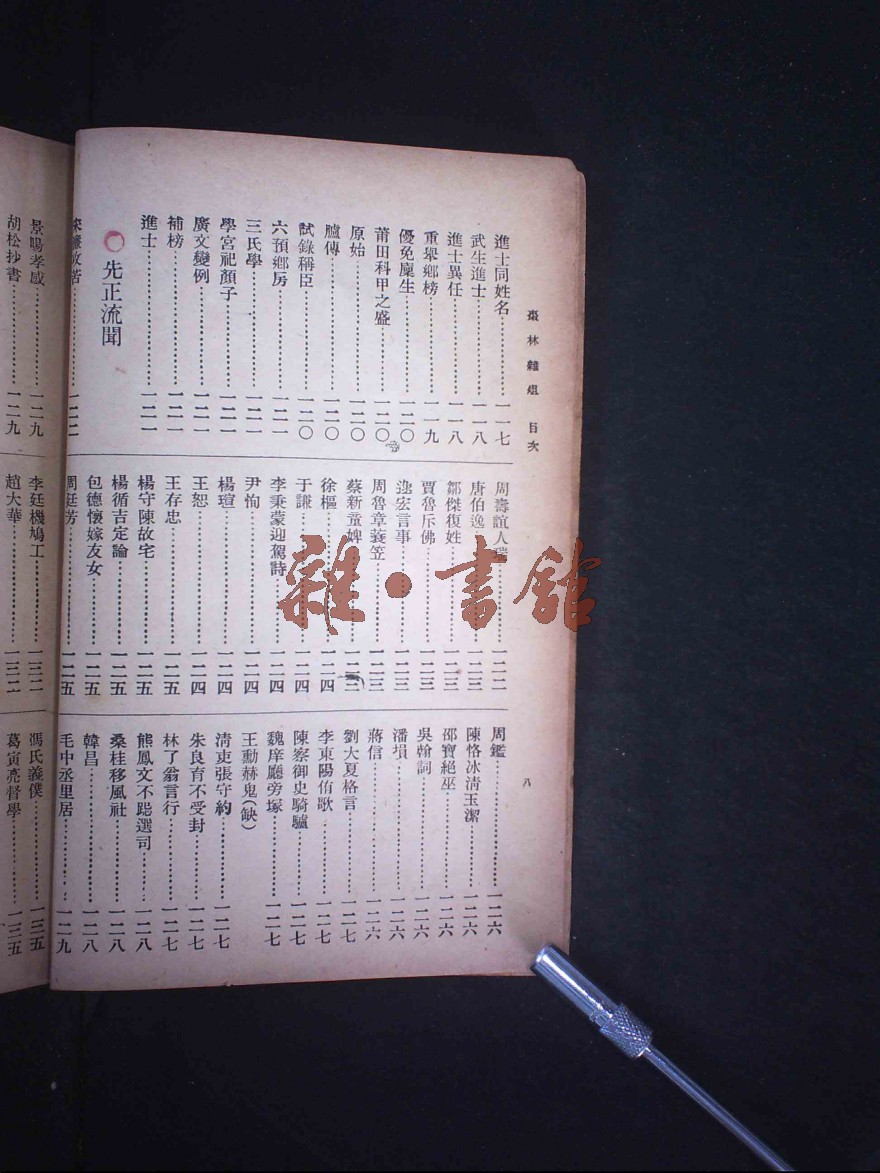 棗林雜俎 目次
八
進士同姓名…………一一七
武生進士…………一一八
進士異任…………一一八
重舉鄉榜…………一一九
優免廩生…………一二〇
莆田科甲之盛…………一二〇
原始…………一二〇
臚傳…………一二〇
試錄稱臣…………一二〇
六預鄉房…………一二一
三氏學…………一二一
學宮祀顏子…………一二一
廣文變例…………一二一
補榜…………一二一
進士…………一二一
先正流聞
…………一二二
周壽誼人瑞…………一二二
唐伯逸…………一二三
鄒傑復姓…………一二三
賈魯斥佛…………一二三
逯宏言事…………一二三
周魯章蓑笠…………一二三
蔡新董婢…………一二三
徐樞…………一二四
于謙…………一二四
李秉蒙迎駕詩…………一二四
尹恂…………一二四
楊瑄…………一二四
王恕…………一二四
王存忠…………一二五
楊守陳故宅…………一二五
楊循吉定論…………一二五
包德懷嫁友女…………一二五
周廷芳…………一二五
周鑑…………一二六
陳恪冰清玉潔…………一二六
邵寶絕巫…………一二六
吳翰詞…………一二六
潘塤…………一二六
蔣信…………一二六
劉大夏格言…………一二七
李東陽侑歌…………一二七
陳察御史騎驢…………一二七
魏庠廳旁塚…………一二七
王勳赫鬼(缺)
清吏張守約…………一二七
朱良育不受封…………一二七
林了翁言行…………一二七
熊鳳文不跽選司…………一二八
桑桂移風社…………一二八
韓昌…………一二八
毛中丞里居…………一二九
景暘孝感…………一二九
胡松抄書…………一二九
李廷機鳩工…………一三二
趙大華…………一三二
馮氏義僕…………一三五
葛寅亮督學…………一三五
雜·書館